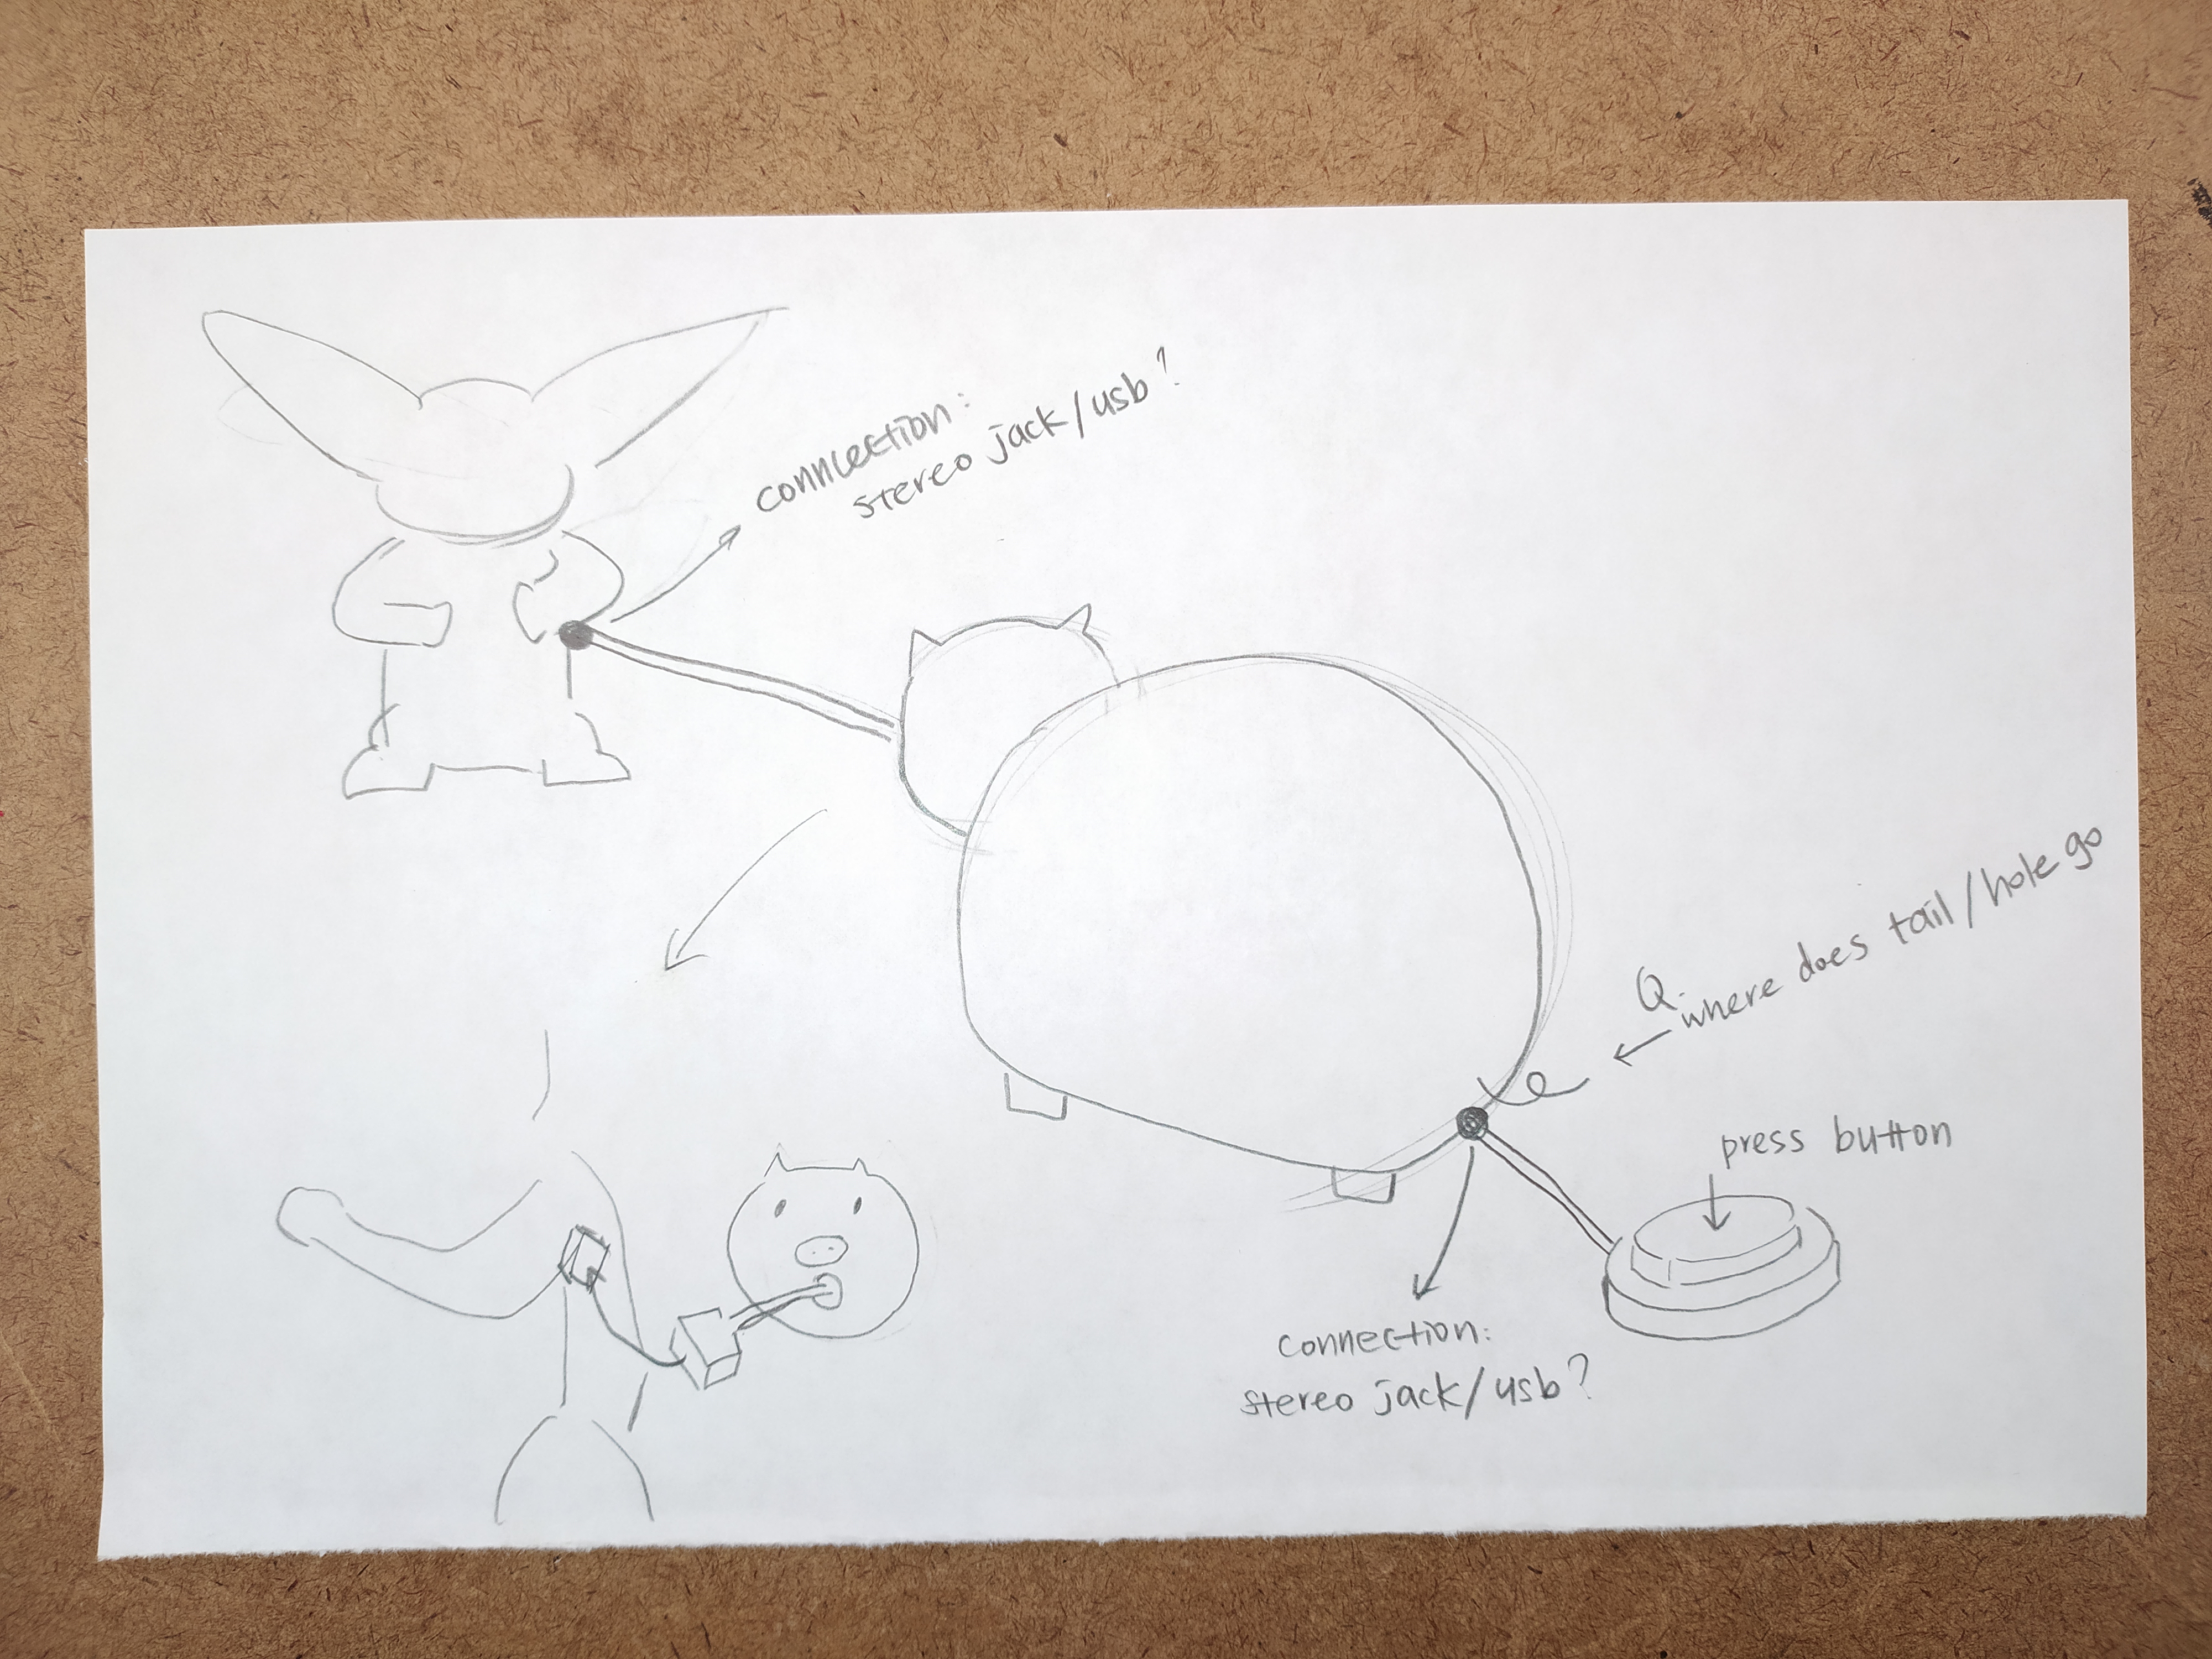 connection:
stereo jack/usb?
Q.
where does tail/hole go
press button
connection:
stereo jack/usb?